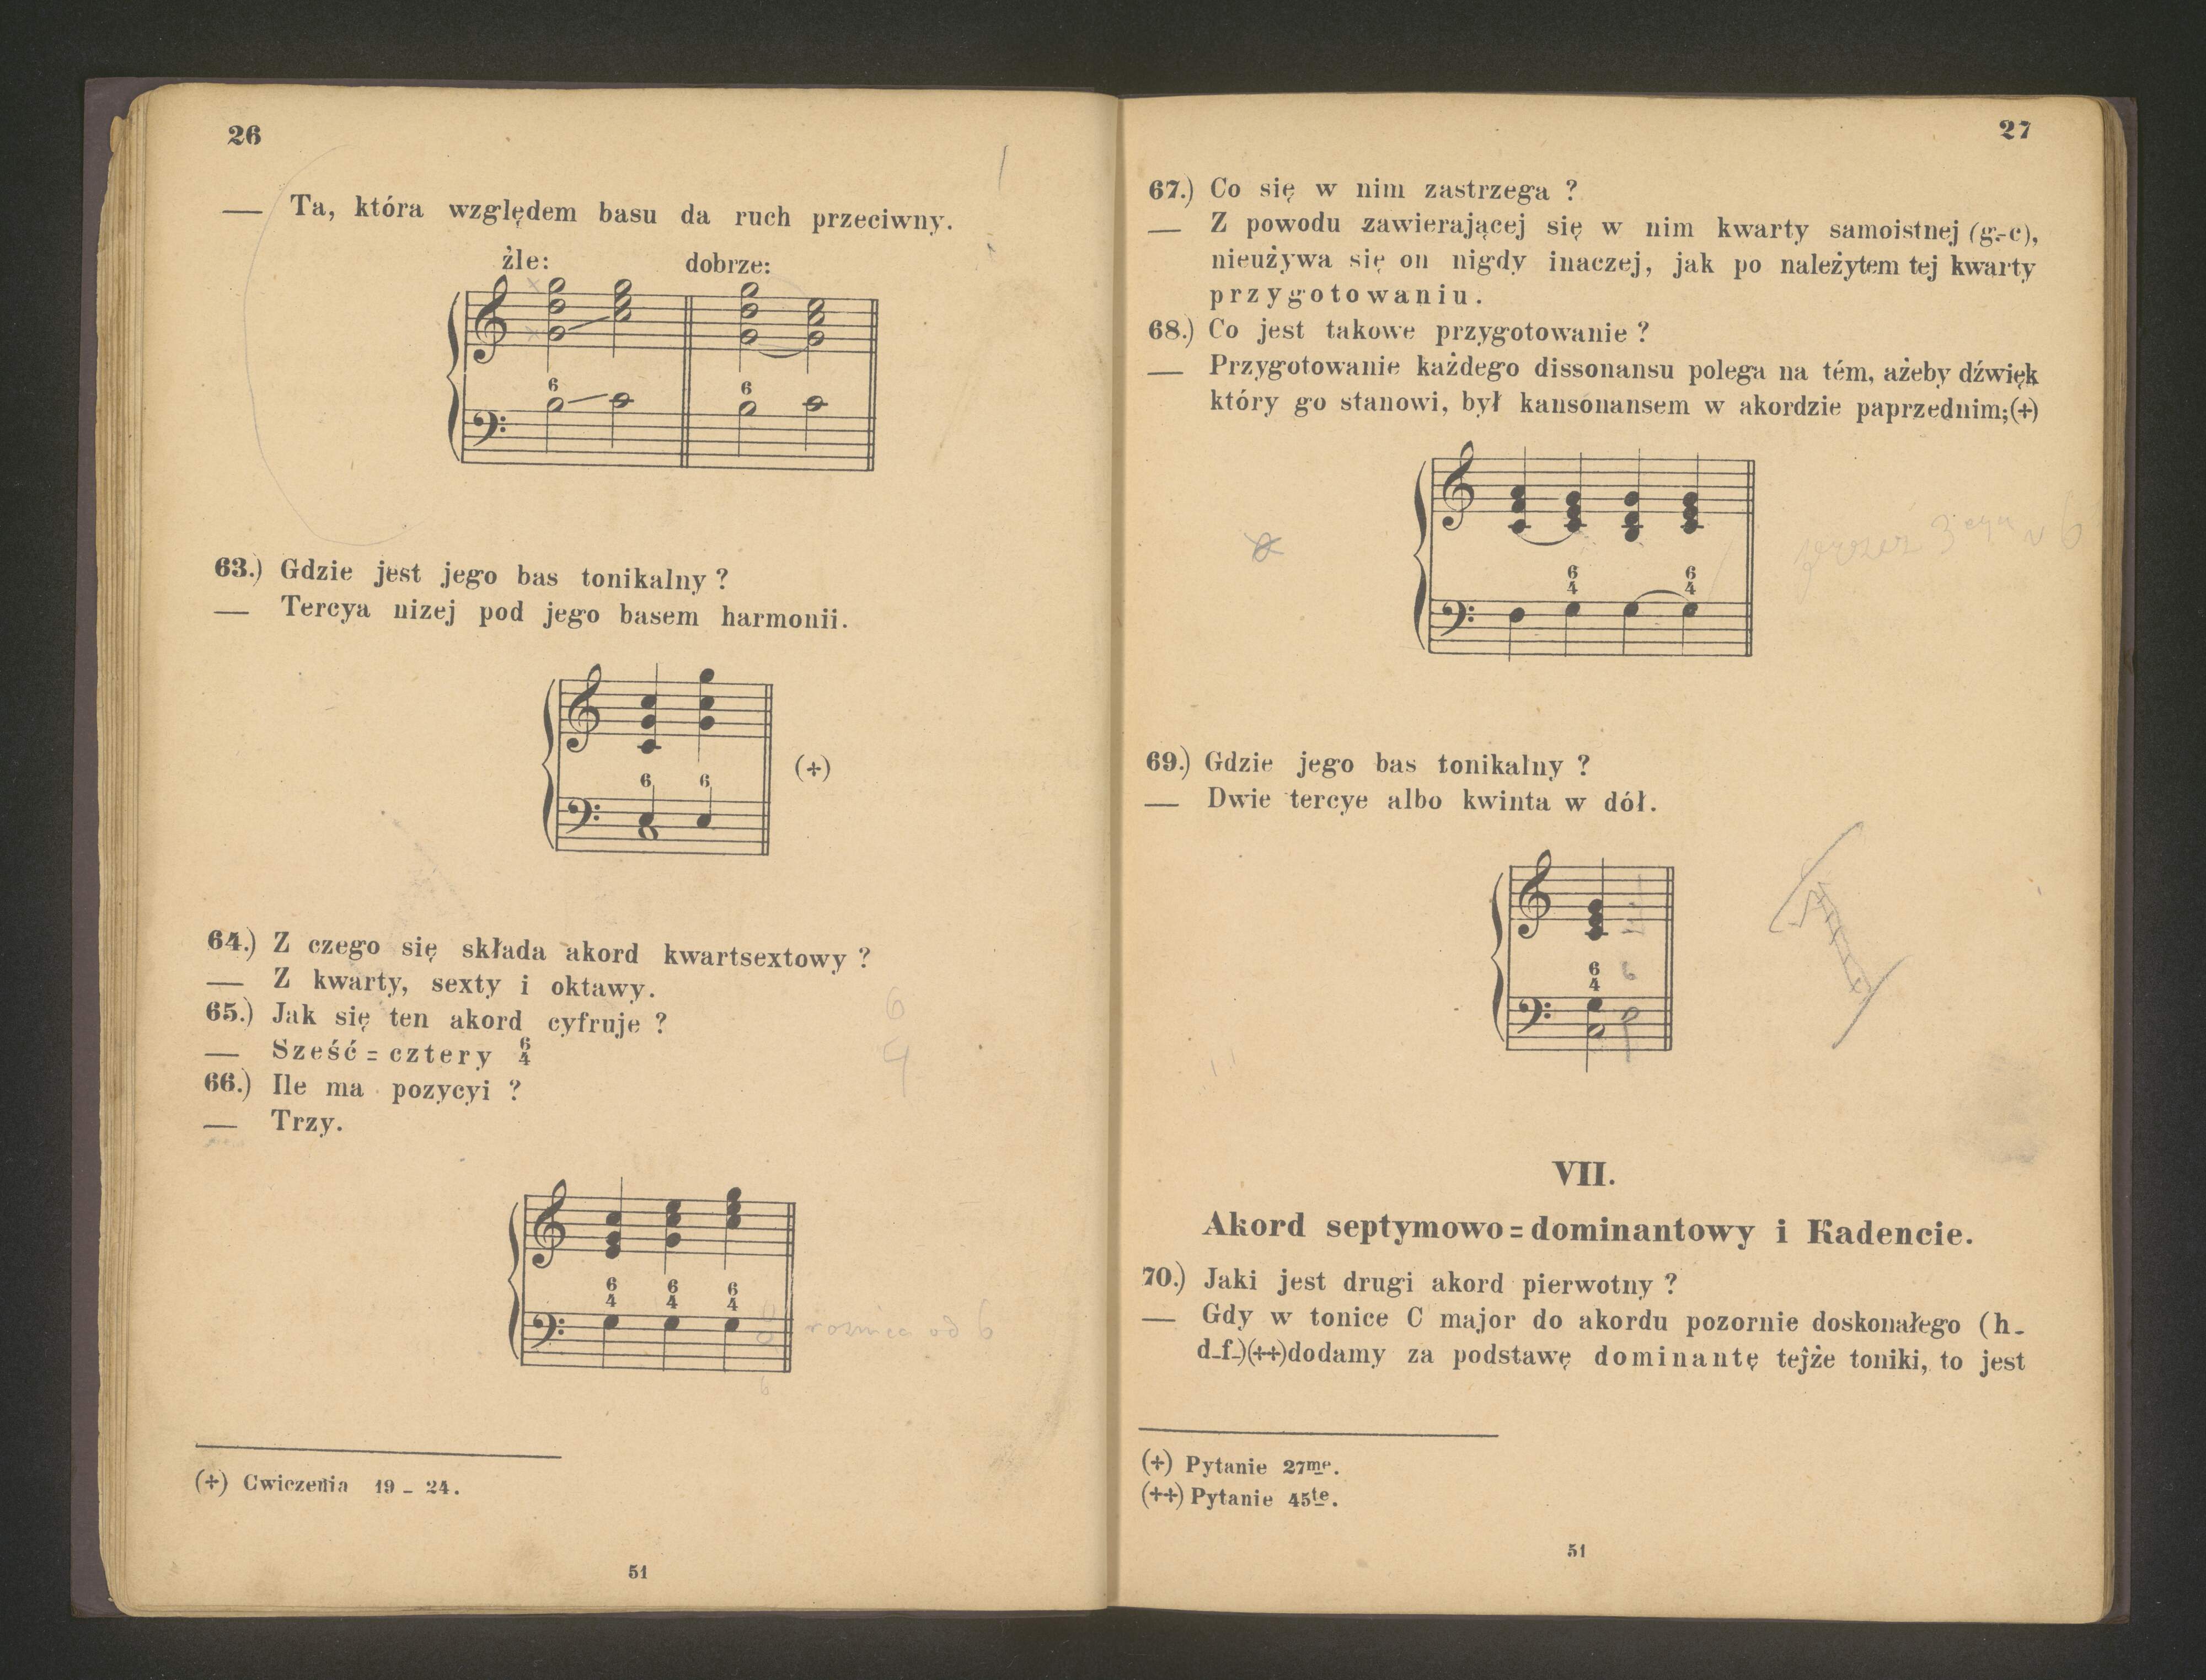 26
— Ta, która względem basu da ruch przeciwny.
żle: dobrze:
6 6
63.) Gdzie jest jego bas tonikalny ?
— Tercya nizej pod jego basem harmonii.
6 6
(+)
64.) Z czego się składa akord kwartsextowy ?
— Z kwarty, sexty i oktawy.
65.) Jak się ten akord cyfruje ?
— Sześć = cztery 6/4
6
4
66.) Ile ma pozycyi ?
— Trzy.
6 6 6
4 4 4
roznica od 6
(+) Cwiczenia 19 - 24.
51
27
67.) Co się w nim zastrzega ?
— Z powodu zawierającej się w nim kwarty samoistnej (g.-c),
nieużywa się on nigdy inaczej, jak po należytem tej kwarty
przygotowaniu.
68.) Co jest takowe przygotowanie ?
— Przygotowanie każdego dissonansu polega na tém, ażeby dźwięk
który go stanowi, był kansonansem w akordzie paprzednim;(+)
6 6
4 4
69.) Gdzie jego bas tonikalny ?
— Dwie tercye albo kwinta w dół.
6 6
4
VII.
Akord septymowo = dominantowy i Kadencie.
70.) Jaki jest drugi akord pierwotny ?
— Gdy w tonice C major do akordu pozornie doskonałego (h-
d-f-)(++)dodamy za podstawę dominantę tejże toniki, to jest
(+) Pytanie 27me.
(++) Pytanie 45te.
51